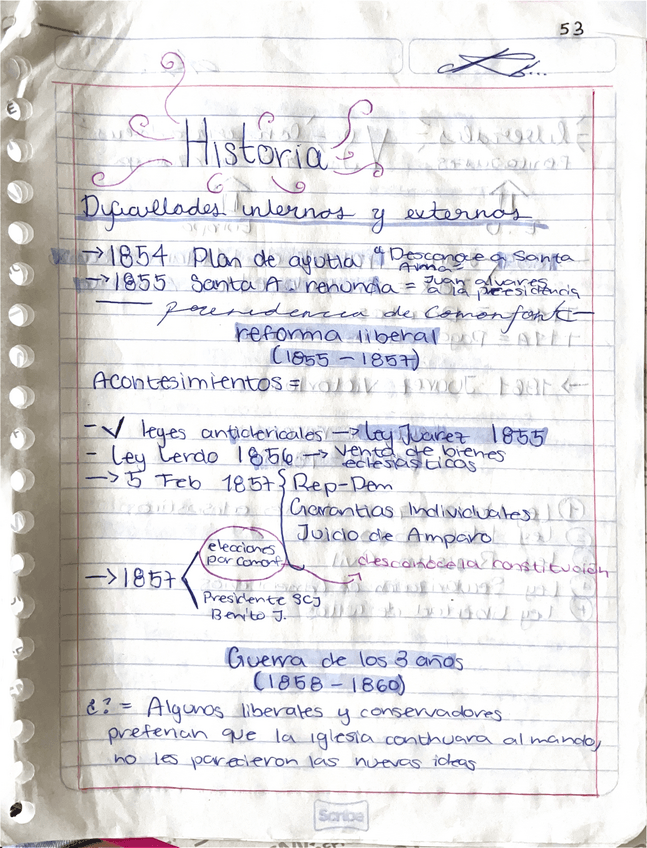 53
Historia
Dificultades internas y externas
→1854 Plan de ayutla "Desconoce a Santa
Anna"
→1855 Santa A. renuncia = Juan alvares
a la presidencia
presidencia de Comonfort
reforma liberal
(1855 - 1857)
Acontesimientos =
- ✓ leyes anticlericales → Ley Juarez 1855
- Ley Lerdo 1856 → Venta de bienes
eclesiasticos
→ 5 Feb 1857 } Rep-Dem
Garantias Individuales
Juicio de Amparo
elecciones
por Comonf
desconoce la constitución
→1857
Presidente SCJ
Benito J.
Guerra de los 3 años
(1858 - 1860)
¿? = Algunos liberales y conservadores
preferian que la iglesia continuara al mando,
no les parecieron las nuevas ideas
Scribe